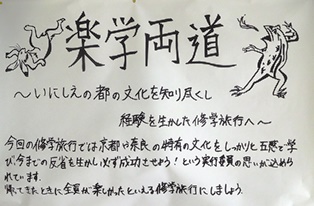 楽学両道
～いにしえの都の文化を知り尽くし
経験を生かした修学旅行へ～
今回の修学旅行では京都や奈良の特有の文化をしっかりと五感で学
び、今までの反省を生かし必ず成功させよう！という実行委員の思いが込めら
れています。
帰ってきたときに全員が楽しかったといえる修学旅行にしましょう。